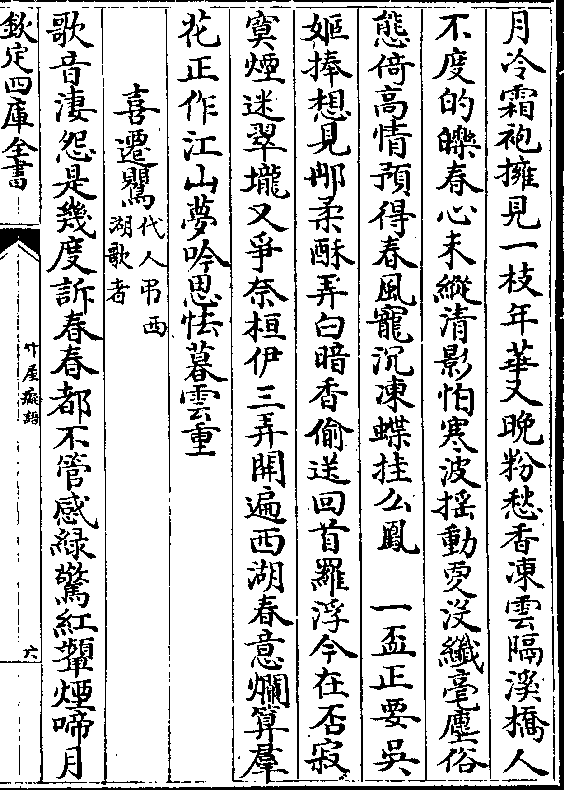 月冷霜袍擁見一枝年華又晚粉愁香凍雲隔溪橋人
不度的皪春心未縱清影怕寒波揺動更没纖毫塵俗
態倚高情預得春風寵沉凍蝶挂么鳳　一盃正要吴
姬捧想見那柔酥弄白暗香偷送回首羅浮今在否寂
寞煙迷翠壠又爭奈桓伊三弄開遍西湖春意爛算羣
花正作江山夢吟思怯暮雲重
喜遷鶯代人弔西湖歌者
歌音淒怨是幾度訴春春都不管感緑驚紅顰煙啼月
欽定四庫全書
竹屋癡語
六